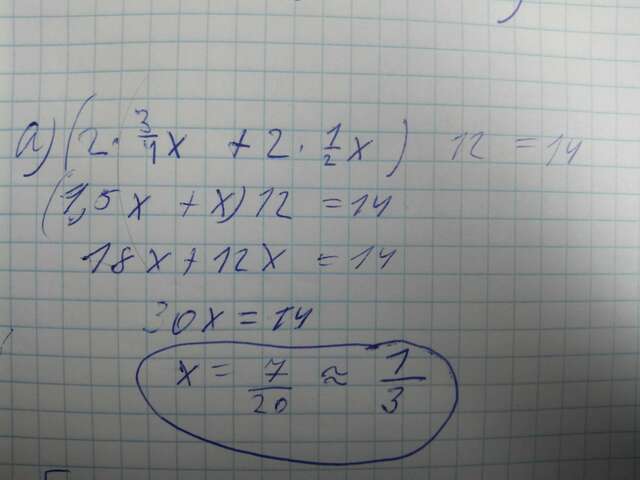 a) (2 · 3/4 x + 2 · 1/2 x) 12 = 14
(1,5x + x) 12 = 14
18x + 12x = 14
30x = 14
x = 7/20 ≈ 1/3